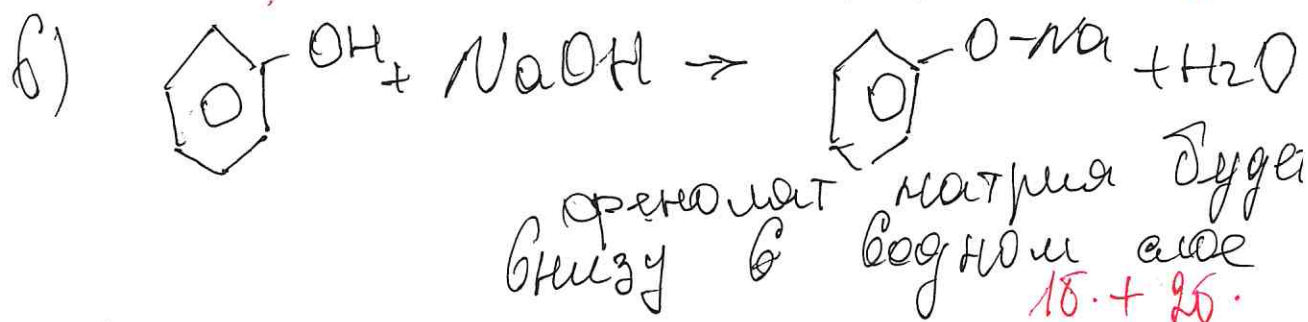 б) OH + NaOH → O-Na + H2O
фенолят натрия буде
внизу в водном слое
1б. + 2б.